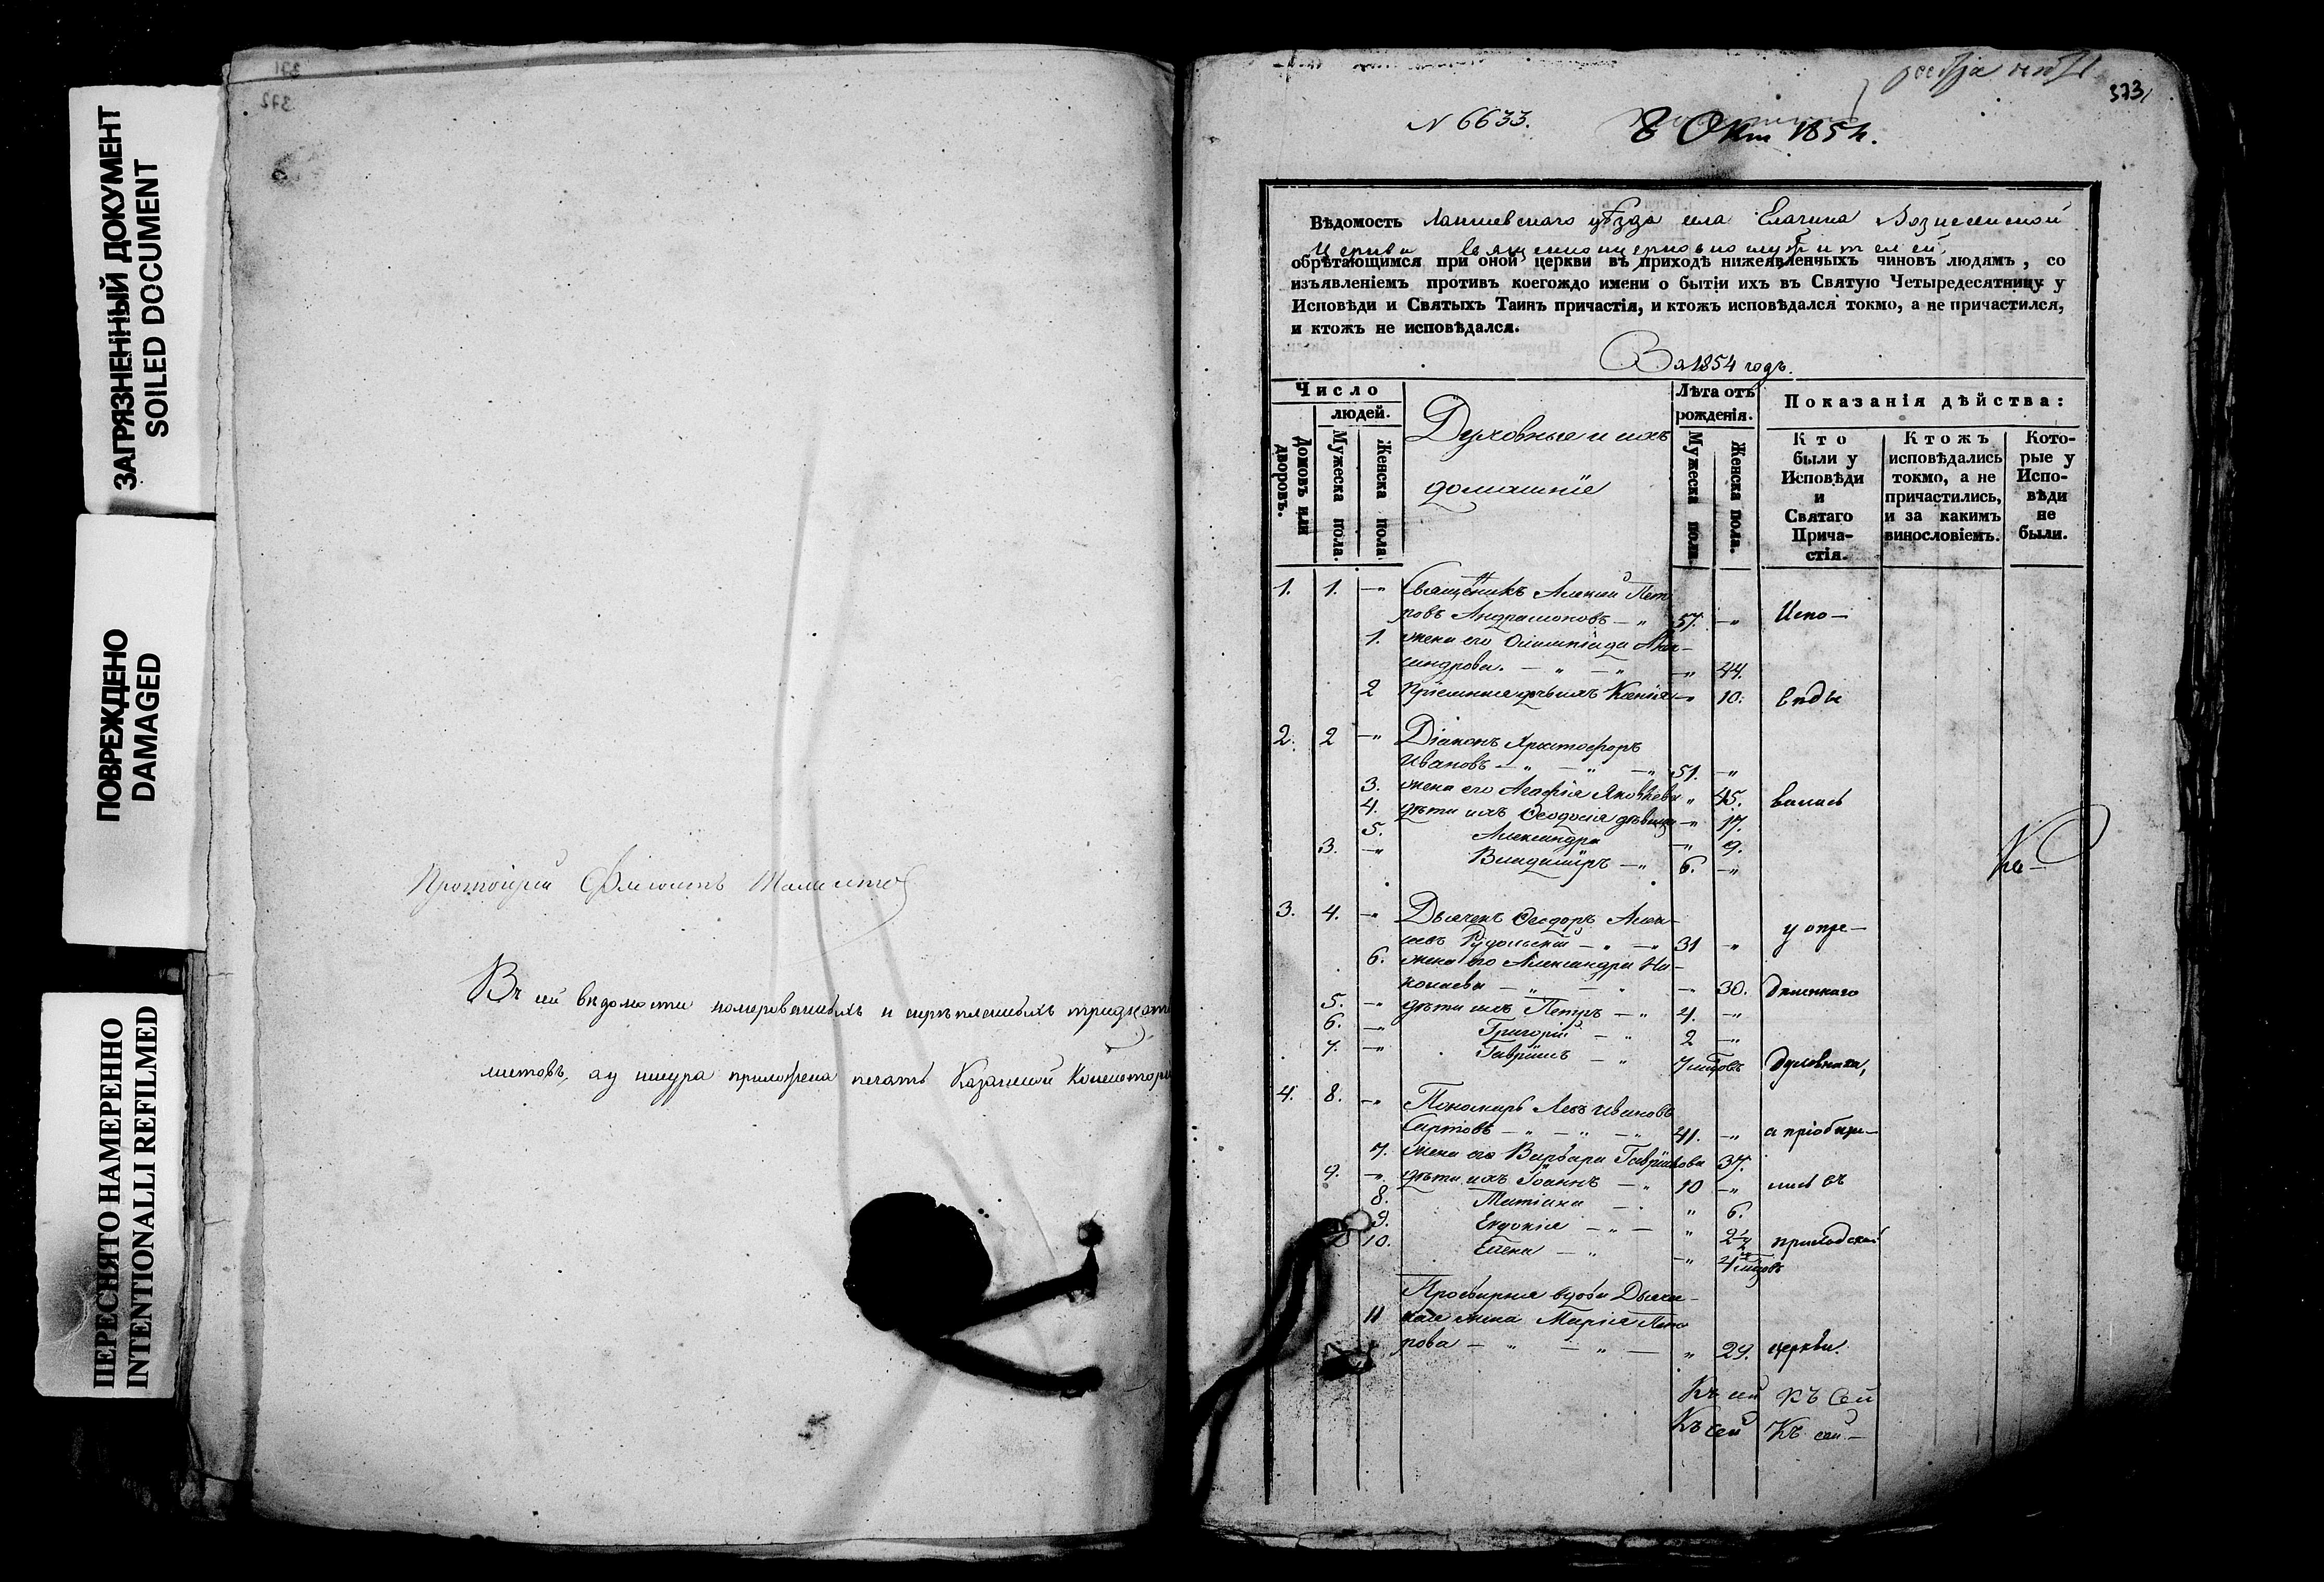 ЗАГРЯЗНЕННЫЙ ДОКУМЕНТ
SOILED DOCUMENT
ПОВРЕЖДЕНО
DAMAGED
ПЕРЕСНЯТО НАМЕРЕННО
INTENTIONALLI REFILMED
371
372
Протоіерей
Въ сей вѣдомости номерованныхъ и скрѣпленныхъ тридцать
листовъ, а у шнура приложена печать Казанской Консисторіи
373
N 6633.
8 Окт 1854.
Вѣдомость Лаишевскаго уѣзда села Елагина Вознесенской
Церкви Священноцерковнослужителей,
обрѣтающимся при оной церкви въ приходѣ нижеявленныхъ чиновъ людямъ, со
изъявленіемъ противъ коегождо имени о бытіи ихъ въ Святую Четыредесятницу у
Исповѣди и Святыхъ Таинъ причастія, и ктожъ исповѣдался токмо, а не причастился,
и ктожъ не исповѣдался.
За 1854 годъ.
Число
людей.
Домовъ или дворовъ.
Мужеска пола.
Женска пола.
Духовные и ихъ
домашніе
Лѣта отъ
рожденія.
Мужеска пола.
Женска пола.
Показанія дѣйства:
Кто были у Исповѣди и Святаго Прича-стія.
Ктожъ исповѣдались токмо, а не причастились, и за какимъ винословіемъ.
Кото-рые у Испо-вѣди не были.
1. 1. —" Священникъ Алексій Пет
ровъ Андрамоновъ — " 57. —" Испо—
1. жена его Олимпіада Алек—
сандрова. — " — " —" 44.
2 Пріемная дочь ихъ Ксенія —" 10. вѣды
2. 2 —" Діаконъ Христофоръ
Ивановъ — " — " —" 51. —"
3. жена его Агафія Яковлева " 45. вались
4. дѣти ихъ Ѳеодосія дѣвица —" 17.
5. Александра —" 9.
3. —" Владиміръ —" 6. —"
Ко—
3. 4. —" Дьячекъ Ѳеодоръ Алек—
сѣевъ Рудольскій — " —" 31 —" у опре—
6. жена его Александра Ни—
колаева — " — " —" 30. дѣленнаго
5. —" дѣти ихъ Петръ — " 4. —"
6. —" Григорій — " 2 —"
7. —" Гавріилъ — " 7 мѣсцовъ духовника,
4. 8. —" Пономарь Левъ Ивановъ
Сартовъ — " — " —" 41. —" а пріобща—
7. жена его Варвара Гавріилова 37.
9. —" дѣти ихъ Іоаннъ —" 10 —" лись въ
8. Татіана —" " 6.
9. Евдокія —" — " 2½ приходской
10. Елена — " " 4 мѣсцовъ
Просвирня вдова Дьячев—
11 ская жена Марія Пет
рова — " — " — " 29. церкви.
Къ сей къ Сей
Къ сей Къ сей—